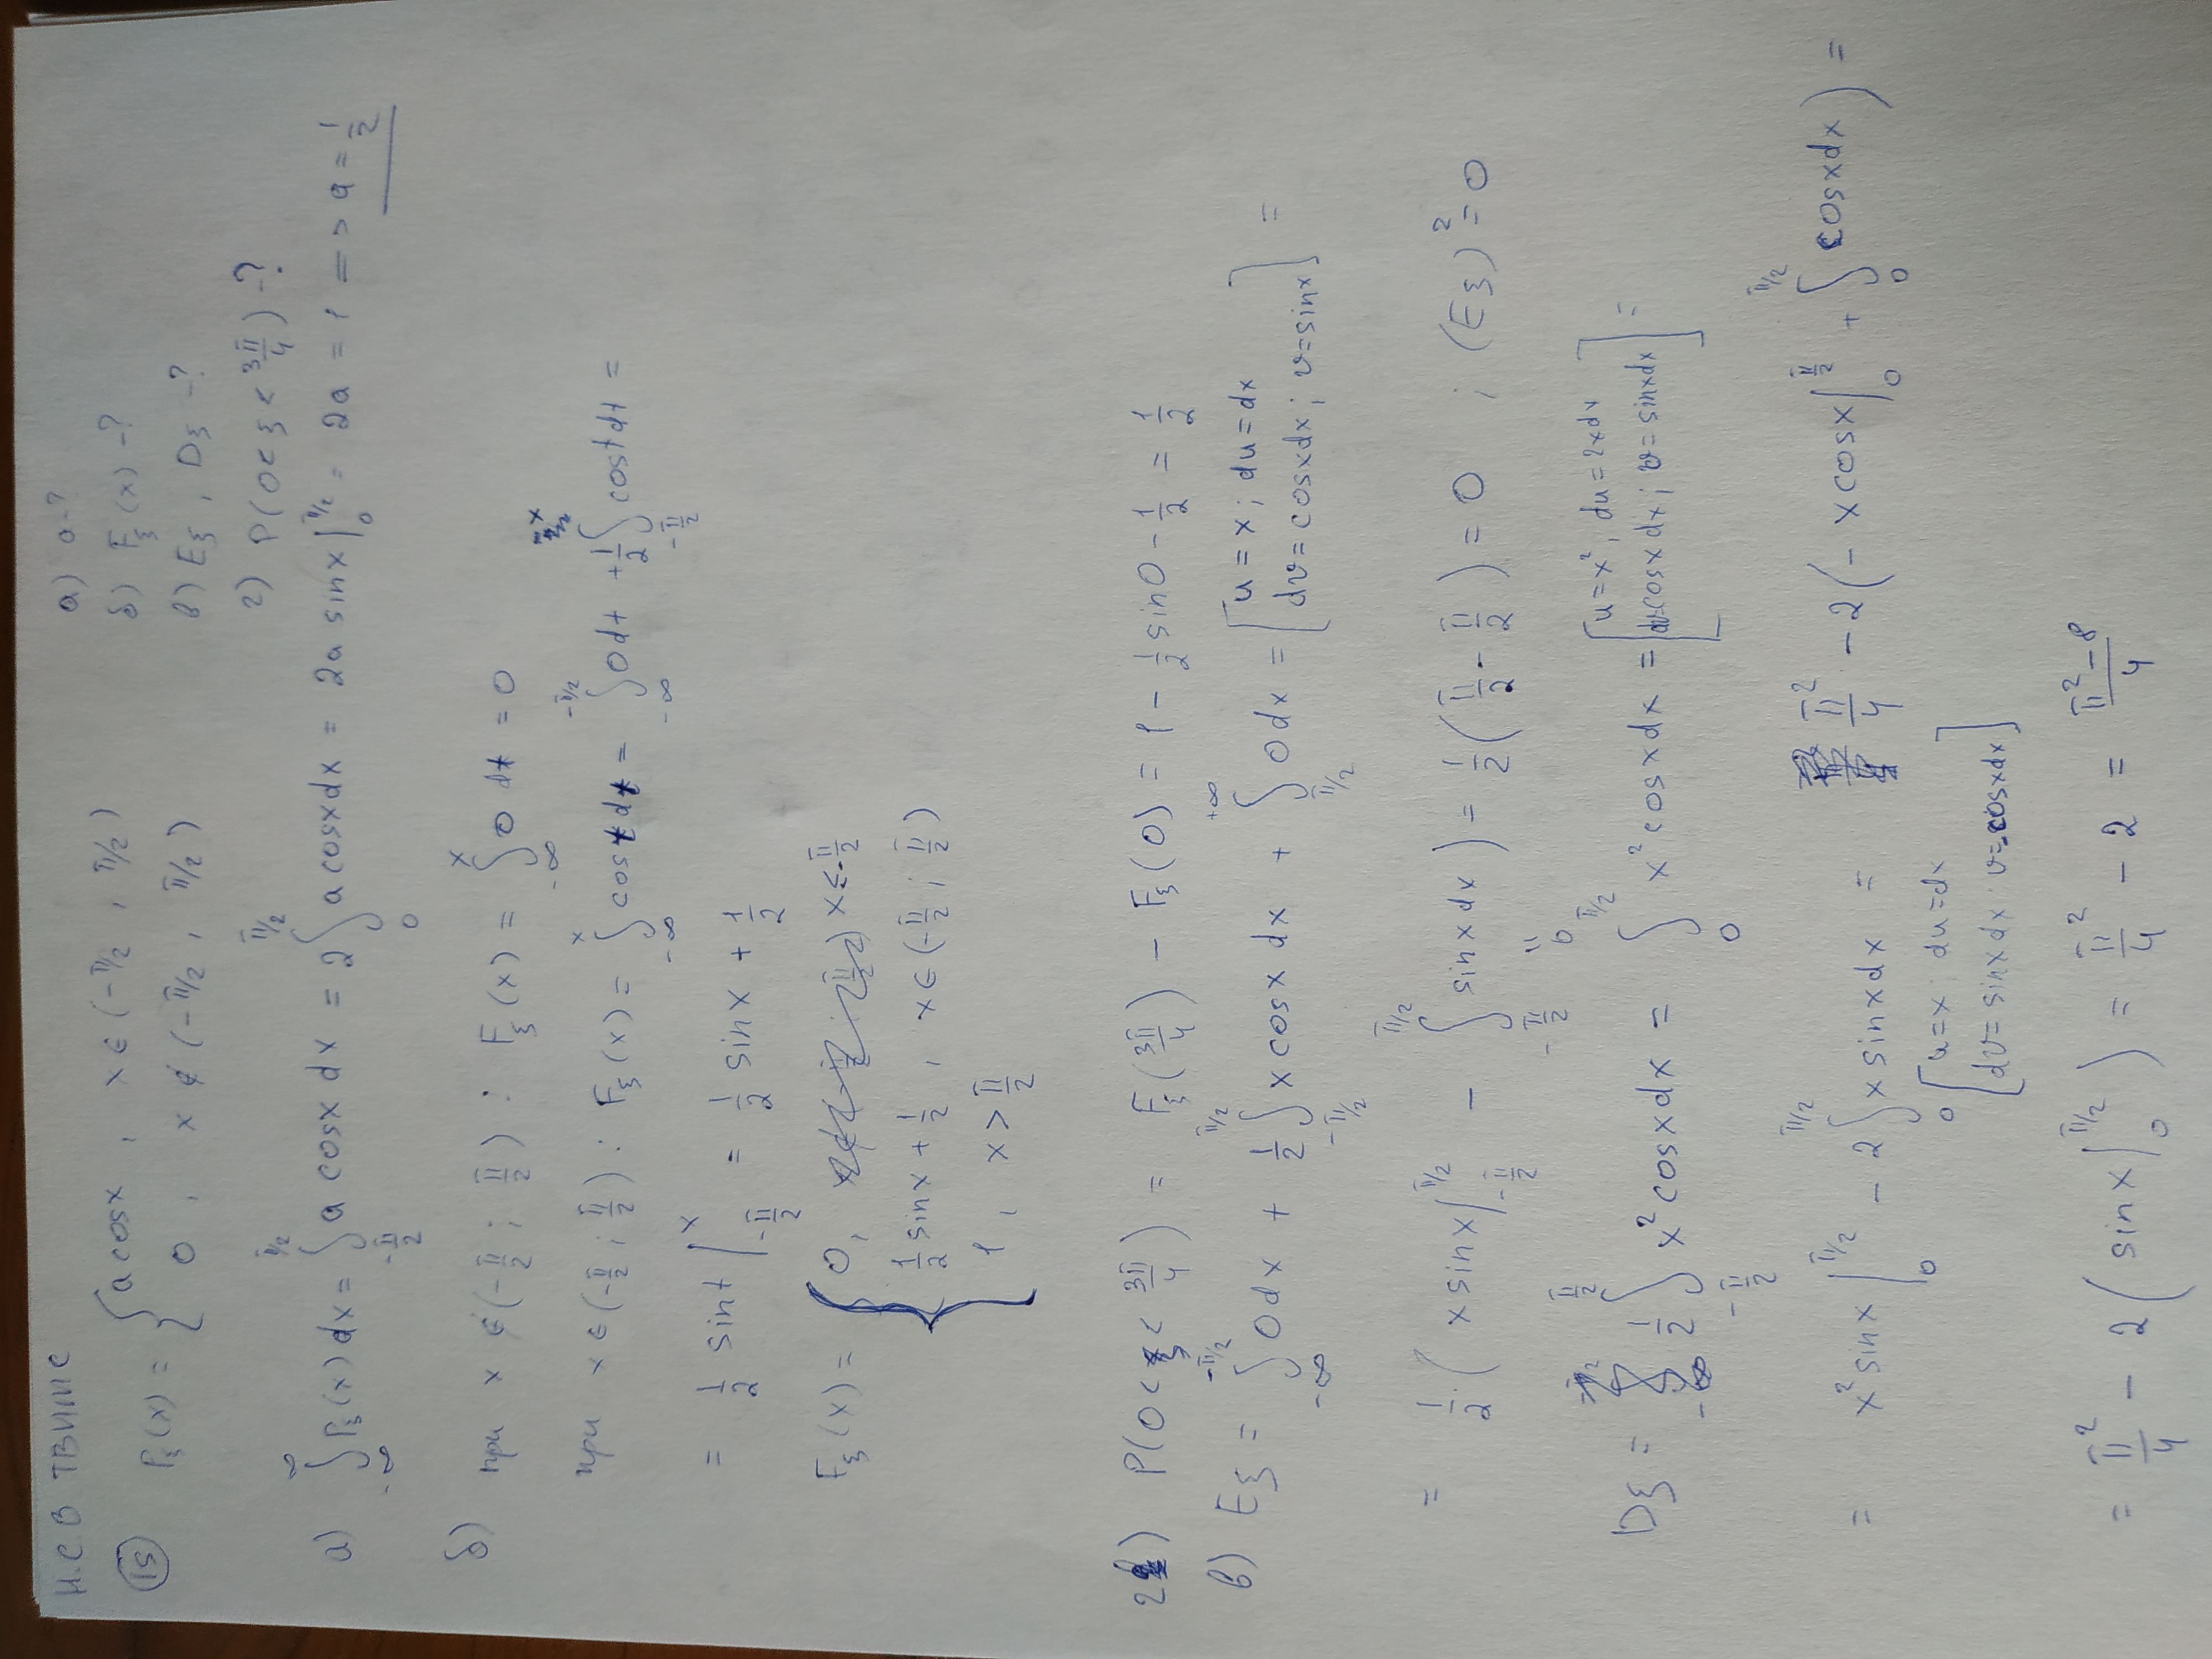 Н.С.В ТВИМС
а) a-?
(15) P_ξ(x) = { a cosx , x ∈ (-π/2 , π/2)
0 , x ∉ (-π/2 , π/2)
б) F_ξ(x) -?
в) Eξ , Dξ -?
г) P(0<ξ< 3π/4) -?
а) ∫_{-∞}^{∞} P_ξ(x) dx = ∫_{-π/2}^{π/2} a cosx dx = 2∫_0^{π/2} a cosx dx = 2a sinx |_0^{π/2} = 2a = 1 => a = 1/2
б) при x ∉ (-π/2 ; π/2) : F_ξ(x) = ∫_{-∞}^{x} 0 dt = 0
при x ∈ (-π/2 ; π/2) : F_ξ(x) = ∫_{-∞}^{x} cost dt = ∫_{-∞}^{-π/2} 0dt + 1/2 ∫_{-π/2}^{x} cost dt =
= 1/2 sint |_{-π/2}^{x} = 1/2 sinx + 1/2
F_ξ(x) = { 0, x ≤ -π/2
1/2 sinx + 1/2 , x ∈ (-π/2 ; π/2)
1 , x > π/2
г) P(0<ξ< 3π/4) = F_ξ(3π/4) - F_ξ(0) = 1 - 1/2 sin0 - 1/2 = 1/2
в) Eξ = ∫_{-∞}^{-π/2} 0dx + 1/2 ∫_{-π/2}^{π/2} x cosx dx + ∫_{π/2}^{+∞} 0dx = [u = x ; du = dx
dv = cosxdx ; v = sinx] =
= 1/2 · ( x sinx |_{-π/2}^{π/2} - ∫_{-π/2}^{π/2} sinx dx ) = 1/2 ( π/2 - π/2 ) = 0 ; (Eξ)² = 0
" 0
Dξ = 1/2 ∫_{-π/2}^{π/2} x² cosxdx = ∫_0^{π/2} x² cosxdx = [u = x² , du = 2xdx
dv=cosx dx ; v = sinxdx] =
= x² sinx |_0^{π/2} - 2∫_0^{π/2} x sinxdx = π²/4 - 2( - x cosx |_0^{π/2} + ∫_0^{π/2} cosxdx ) =
[u = x du = dx
dv = sinx dx v=-cosxdx]
= π²/4 - 2( sinx |_0^{π/2} ) = π²/4 - 2 = (π²-8)/4